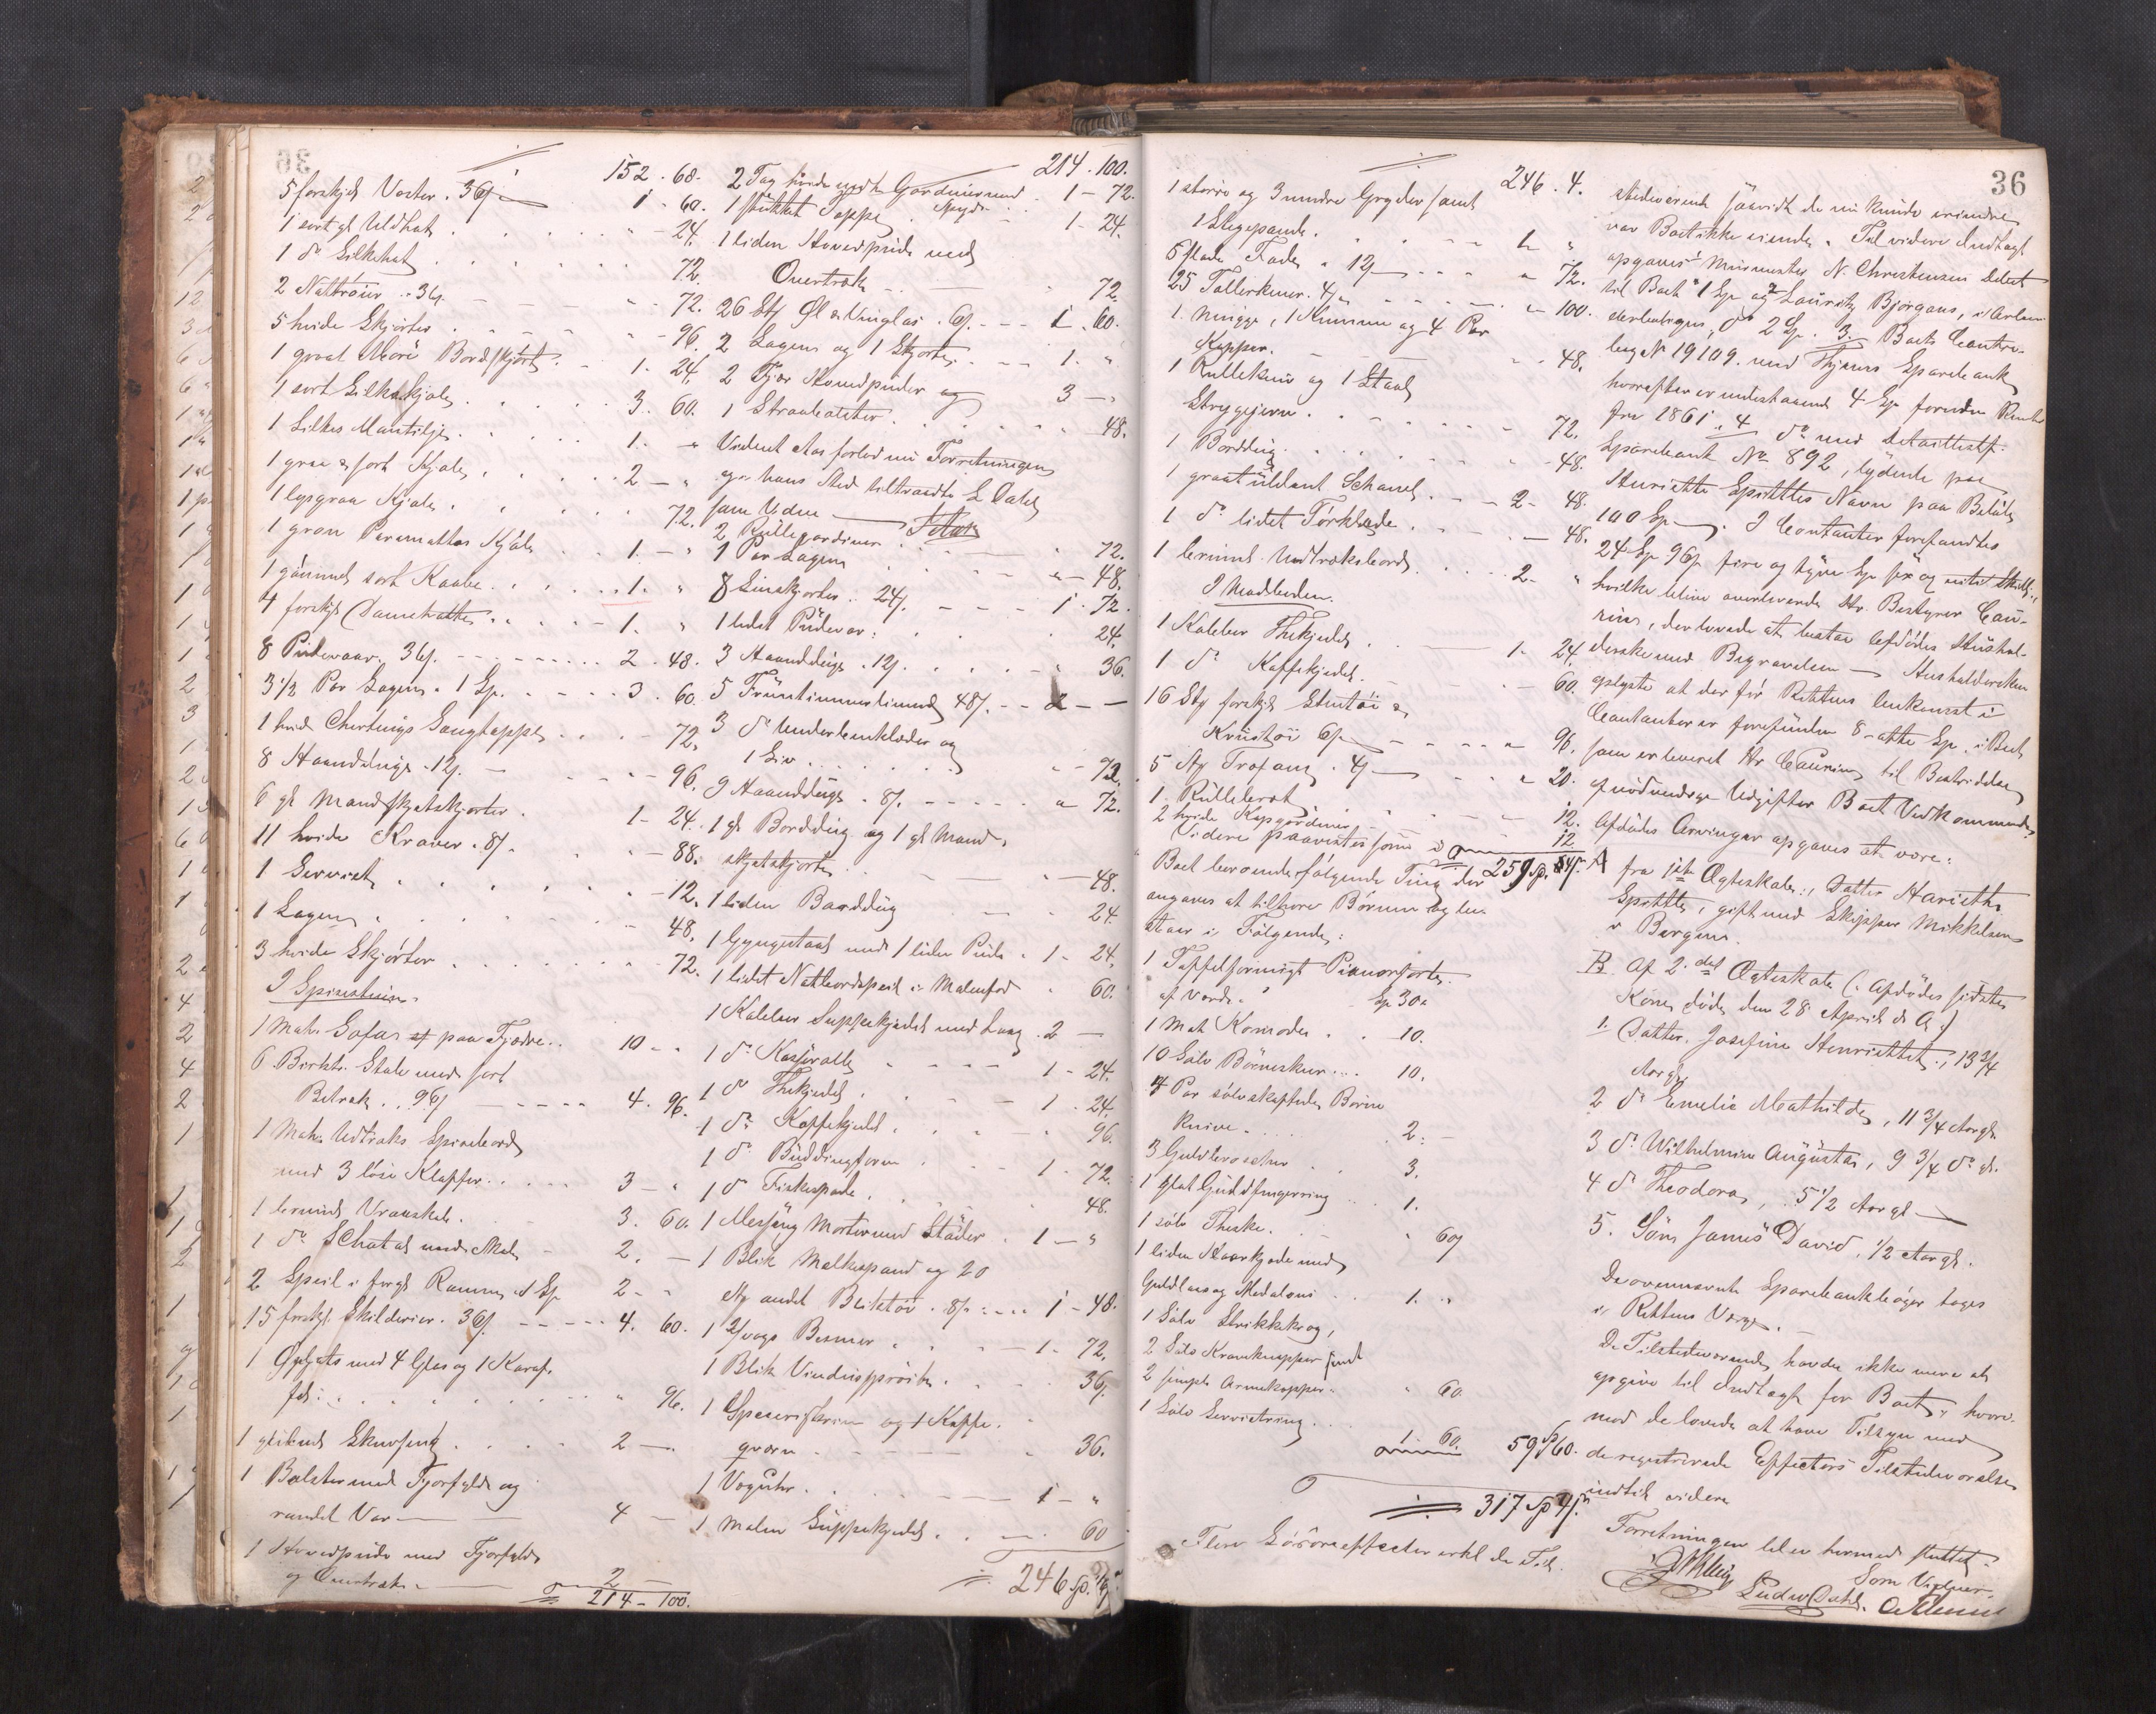 152. 68.
5 forskjel Vester. 36/ 1. 60.
1 sort gl Uldhat " 24.
1 do Silkehat 72.
2 Nattröier .. 36/. " 72.
5 hvide Skjørter " 96.
1 graat Moré Bordskjørt 1. 24.
1 sort Silkekjole 3. 60.
1 Silkes Mantilje 1. "
1 graa & sort Kjole 2 — "
1 lysgraa Kjole 72.
1 grøn Paramattas Kjole 1. — "
1 gammel sort Kaabe 1. "
4 forskjl Damehatte 1. "
8 Pudevaar. 36/. 2. 48.
3 1/2 Par Lagen. 1 Sp. 3. 60.
1 hvid Chertings Sengteppe 72.
8 Haandduge . 12/. 96.
6 gl Mandskjetskjorter 1- 24.
11 hvide Kraver. 8/. 88.
1 Serviet 12.
1 Lagen 48.
3 hvide Skjörter 72.
I Spisestuen.
1 Mah. Sofa paa Fjædre 10 - "
6 Birkts. Stole med sort
Betræk .. 96/ 4. 96.
1 Mah. Udtræks Spisebord
med 3 löse Klapper 3 — "
1 brunmt Vraaskab 3. 60.
1 do Schatol med Skab 2. —
2 Speil i forgl Ramme 1 Sp 2 - "
15 forskjl. Skilderier. 36/. 4. 60.
1 Opsats med 4 Glas og 1 Karaf-
fel " 96.
1 Skuvseng 2 —
1 Bolster med Fjærfyld og
randet Var 4 —
1 Hovedpude med Fjærfyld
og Overtræk 2 —
214 - 100.
214. 100.
2 Fag hvide Gardiner med 1 - 72.
1 stukket Teppe 1- 24.
1 liden Hovedpude med
Overtræk 72.
26 Stk Øl & Vinglas . 6/. 1. 60.
2 Lagen og 1 Skjorte 1. "
2 Fjær Hovedpuder og 3 —
1 Straabolster 48.
Vidnet Aas forlod nu Forretningen
og i hans Sted tiltraadte L Dahl
som Vidne
2 Rullegardiner 72.
1 Par Lagen " — 48.
8 Linskjorter .. 24/. 1. 72.
1 lidet Pudevar 24.
3 Haandduge . 12/. 36.
5 Fruentimmerlinned 48/. 2 — —
3 do Underbenklæder og
1 Liv 72.
9 Haandduge . 8/. " 72.
1 gl Borddug og 1 gl Mand-
skjetskjorte 48.
1 liden Borddug 24.
1 Gyngestol med 1 liden Pude 1- 24.
1 lidet Natbordspeil i Malmfod 60.
1 Kobber Suppekjedel med Laag 2 —
1 do Kasserolle 1 - 24.
1 do Thekjedel 1 . 24.
1 do Kaffekjedel 96.
1 do Buddingform 1 - 72.
1 do Fiskespade 48.
1 Messing Morter med Støder 1 — "
1 Blik Melkespand og 20
Stk andet Bliktöi . 8/. 1 - 48.
1 Bismer 1- 72.
1 Blik Vinduspröite 36.
1 og 1 Kaffe-
qværn 36.
1 Væguhr 1 - "
1 Malm Suppekjedel 60
246 Sp. 4/.
36
246. 4.
1 större og 3 mindre Gryder samt
1 Stegepande 1- "
6 flade Fade . 12/ " 72.
25 Tallerkner. 4/ " 100.
1. Mugge, 1 Kumme og 4 Par
Kopper 48.
1 Rullekniv og 1 Staal
Strygejern 72.
1 Borddug 48.
1 graat uldent Schavel 2- 48.
1 do lidet Törklæde 48.
1 brunmt Udtræksbord 2- "
I Madboden.
1 Kobber Thekjedel 1- 24.
1 do Kaffekjedel 60.
16 Stk forskjl Stentöi &
Krustöi 6/ " 96.
5 Stk Trofang. 4/ " 20.
1. Rullebræt 12.
2 hvide Kapgardiner 12
259 Sp. 64/. A
Videre paavistes som i
Boet beroende følgende Ting der
angaves at tilhøre Børnene og be-
staar i Følgende:
1 Taffelformigt Pianoforte
af Værdi Sp 30 "
1 Mah Komode 10.
10 Sölv Börneskeer 10.
4 Par sölvskaftede Børne
Knive 2. —
3 Guldbrocher 3.
1 glat Guldfingerring 1.
1 sölv Theske " 60/
1 liden Haarkjede med
Guldlaas og Medaloni 1. "
1 Sölv Strikkekrog,
2 Sölv Kraveknapper samt
2 simple Armeknapper " 60.
1 Sölv Serviettring 1. 60. 59 Sp 60.
317 Sp 4/.
Flere Løsöreeffecter erkl de Til-
stedeværende saavidt de nu kunde erindre
var Boet ikke eiende. Til videre Indtægt
opgaves: Murmester N. Christensen Debet
til Boet 1 Sp og 2 Lauritz Bjørgaas, i Arbeu-
derboligen, do 2 Sp. 3. Boets Contra-
bog No 19109. med Thjems Sparebank
hvorefter er indestaaende 4 Sp foruden Renter
fra 1861. 4 do med
Sparebank No 892, lydende paa
Henriette Spittles Navn paa Beløb
100 Sp. I Contanter forefandtes
24 Sp 96/ fire og tyve Sp sex og niti Skill.,
hvilke bleve overleverede Hr. Bestyrer Cau-
rins, der lovede at bestaa Afdødes Hushol-
derske med Begravelsen — Husholdersken
oplyste at der för Rettens Ankomst i
Contanter er forefunden 8 - otte Sp. i Boet
som er leveret Hr Caurins til Bestridelse
af nödvendige Udgifter Boet Vedkommende.
Afdødes Arvinger opgaves at være:
fra 1ste Ægteskab: Datter Hariette
Spittle, gift med Skipper Mikkelsen
i Bergen.
B. Af 2det Ægteskab (: Afdødes sidste
Kone, døde den 28 April d A :)
1. Datter Josefine Henriette, 13 3/4
Aargl.
2 do Emelie Mathilde, 11 3/4 Aargl.
3 do Wilhelmine Augusta, 9 3/4 do gl.
4 do Theodora, 5 1/2 Aargl —
5. Søn James David, 1/2 Aargl.
De ovennævnte Sparebankbøger toges
i Rettens Værge. —
De Tilstedeværende havde ikke mere at
opgive til Indtægt for Boet, hvor-
med de lovede at have Tilsyn med
de registrerede Effecters Tilstedeværelse
indtil videre
Forretningen blev hermed sluttet.
Som Vidner
Ludv Dahl.